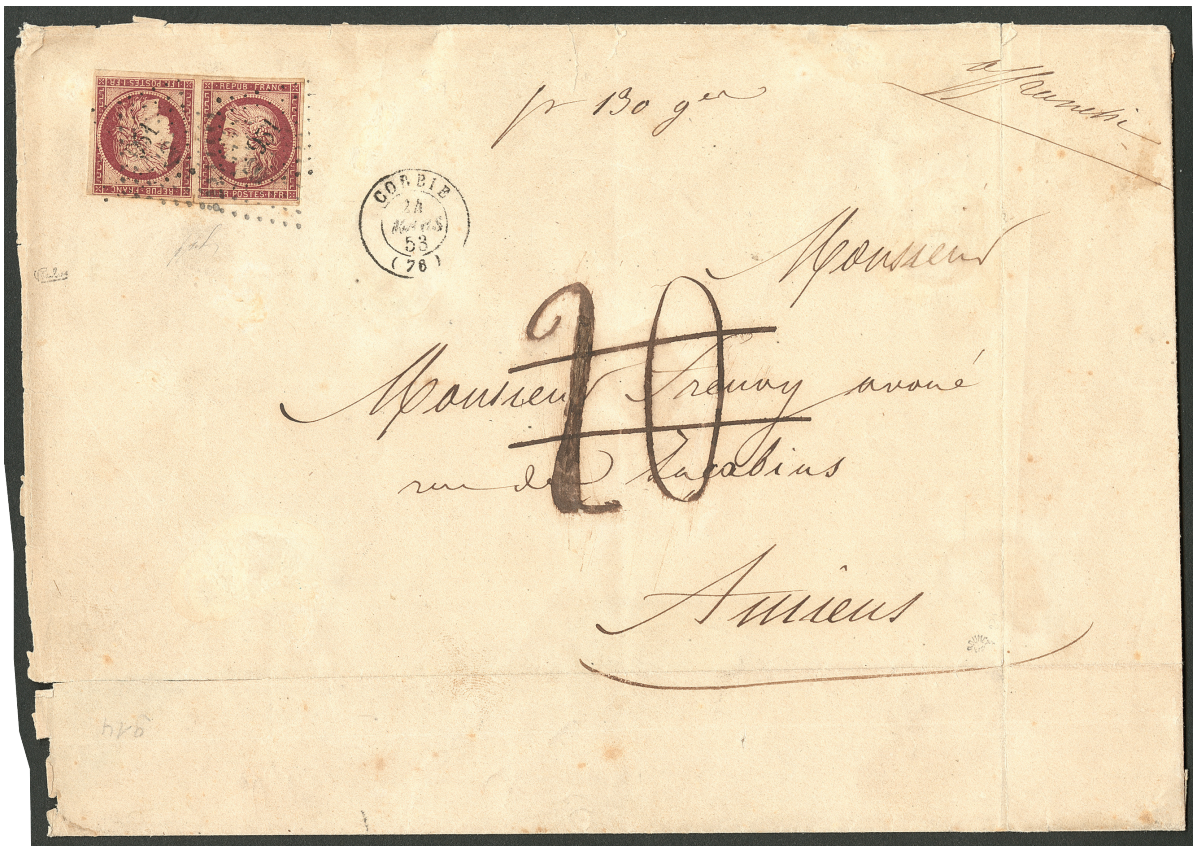 REPUB FRANC
1 FR POSTES 1 FR
951
REPUB FRANC
R POSTES 1 FR
951
pr 130 gr
affranchi
CORBIE
24
MARS
53
(76)
Monsieur
20
Monsieur avoué
rue des Jacobins
Amiens